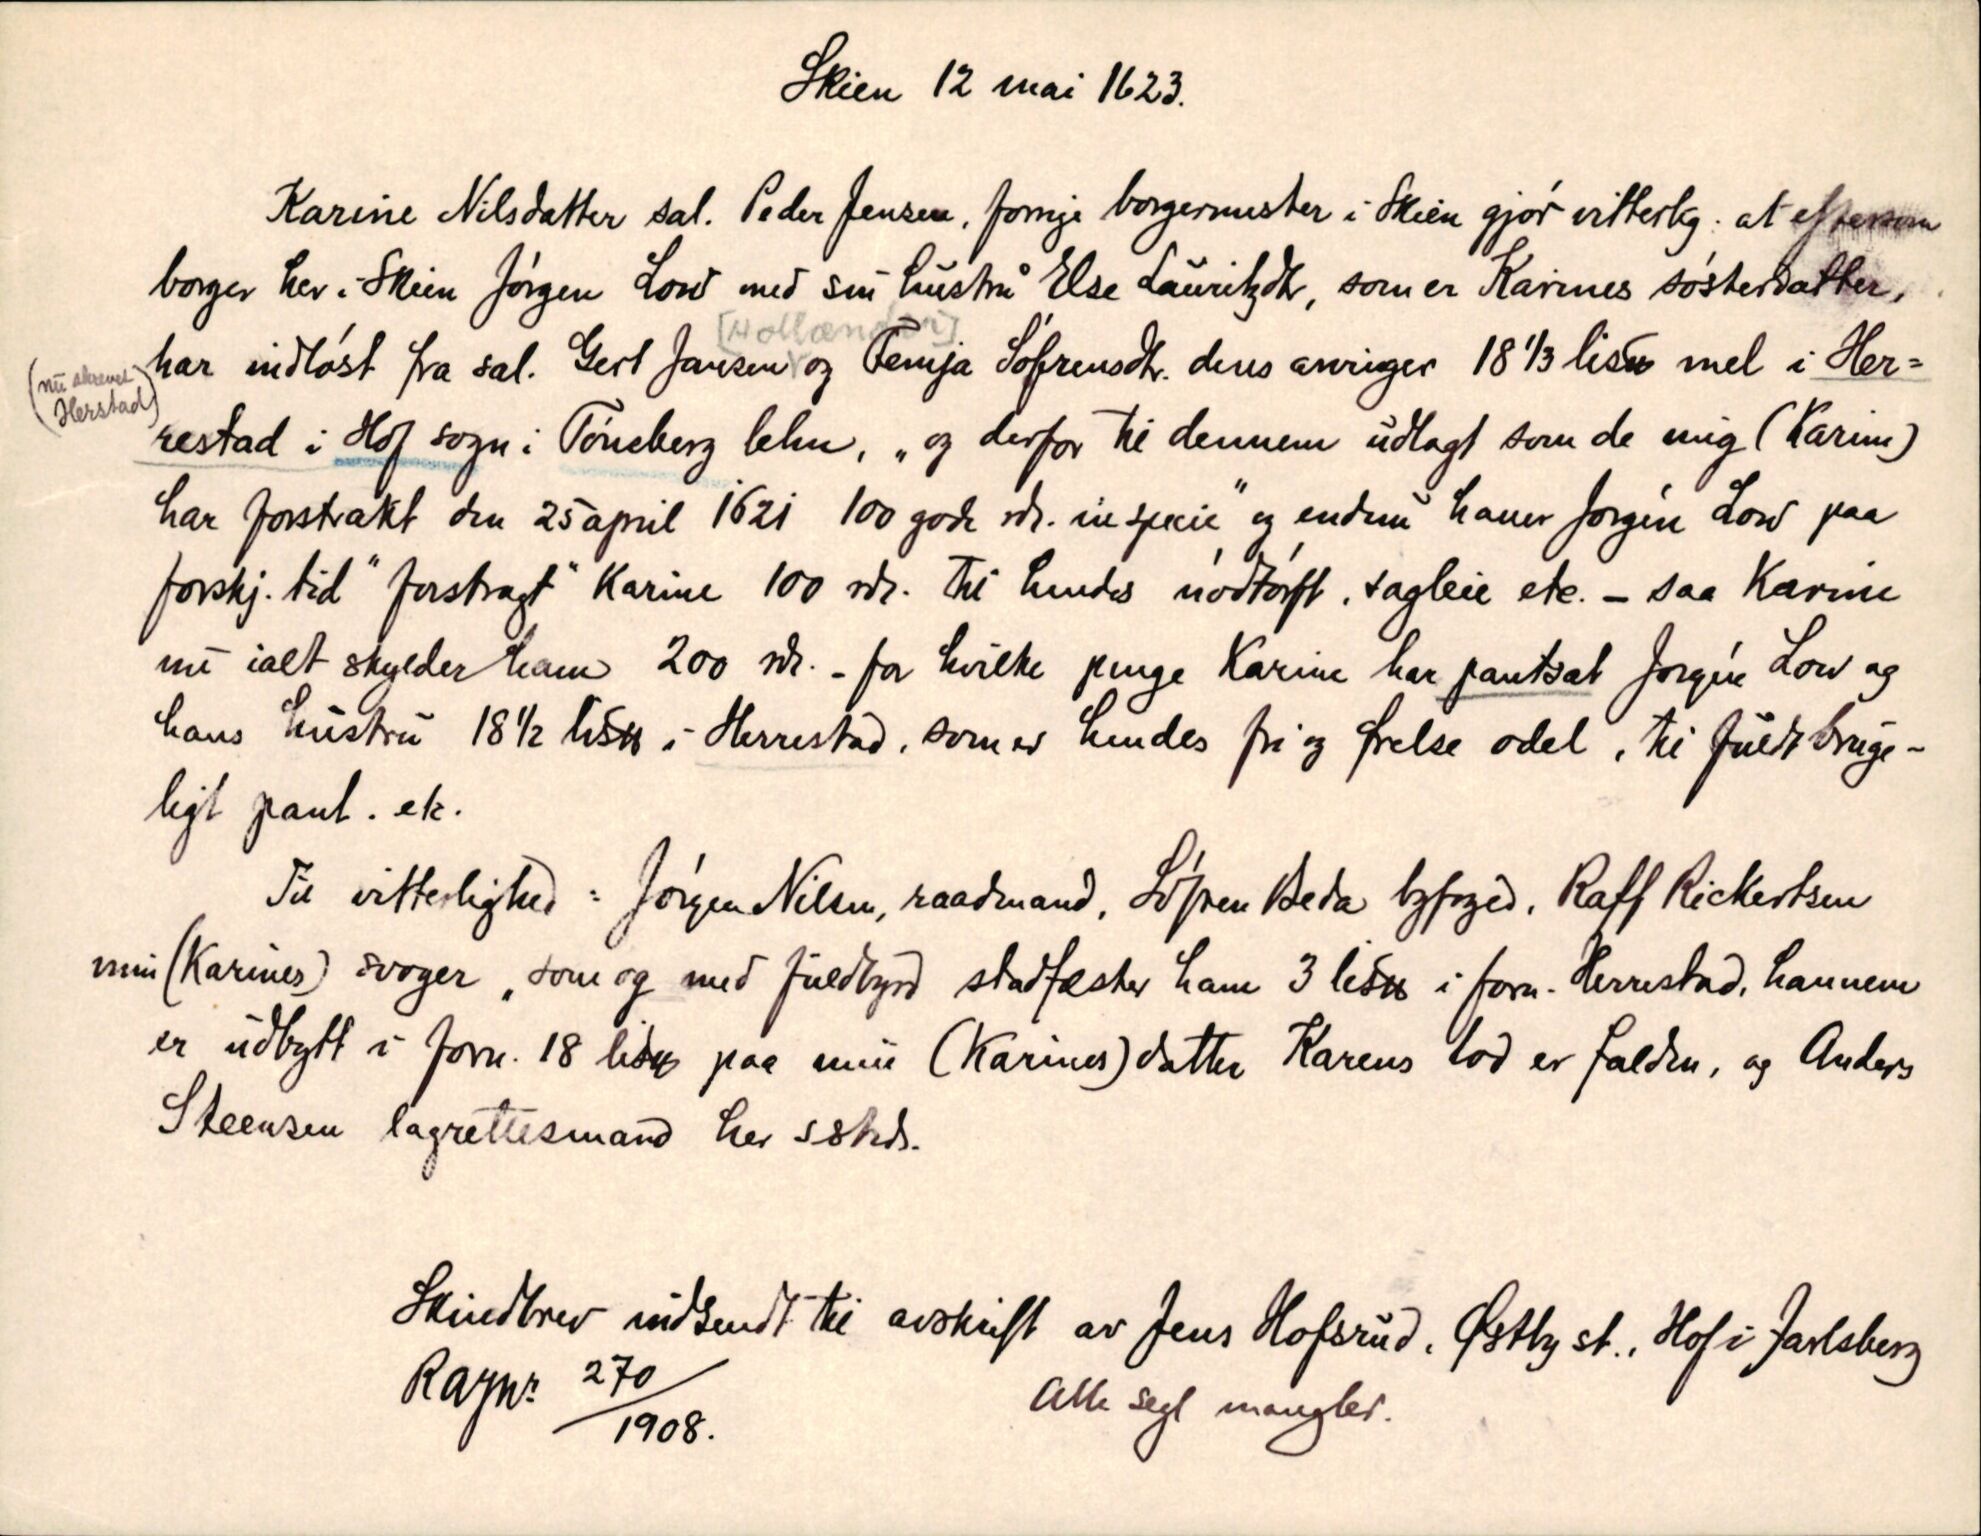 Skien 12 mai 1623.
Karine Nilsdatter sal. Peder Jensen, forrige borgermester i Skien gjör vitterlig: at eftersom
borger her i Skien Jörgen Low med sin hustru Else Lauritzdtr, som er Karines sösterdatter,
[Hollænder]
har indlöst fra sal. Gert Jansen og Temja Söfrensdtr. dens arvinger 18 1/3 lis℔ mel i Her=
(nu skrevet
Herstad)
restad i Hof sogn i Töneberg lehn, "og derfor til dennem udlagt som de mig (Karine)
har forstrakt den 25 april 1621 100 gode rdr. in specie" og endnu haver Jörgen Low paa
forskj. tid "forstragt" Karine 100 rdr. til hendes nödtörft, sagleie etc. – saa Karine
nu ialt skylder ham 200 rdr. – for hvilke penge Karine har pantsat Jörgen Low og
hans hustru 18 1/2 lis℔ i Herrestad, som er hendes fri og frelse odel, til fuldt bruge-
ligt pant. etc.
Til vitterlighed: Jörgen Nilsen, raadmand, Söfren Beda byfoged, Raff Rickertsen
min (Karines) svoger "som og med fuldbyrd stadfæster ham 3 lis℔ i forn. Herrestad, hannem
er udbytt i forn. 18 lis℔ paa min (Karines) datter Karens lod er falden, og Anders
Steensen lagrettesmand her ssteds.
Skindbrev indsendt til avskrift av Jens Hofsrud, Østby st., Hof i Jarlsberg
RAJnr 270/1908.
Alle segl mangler.